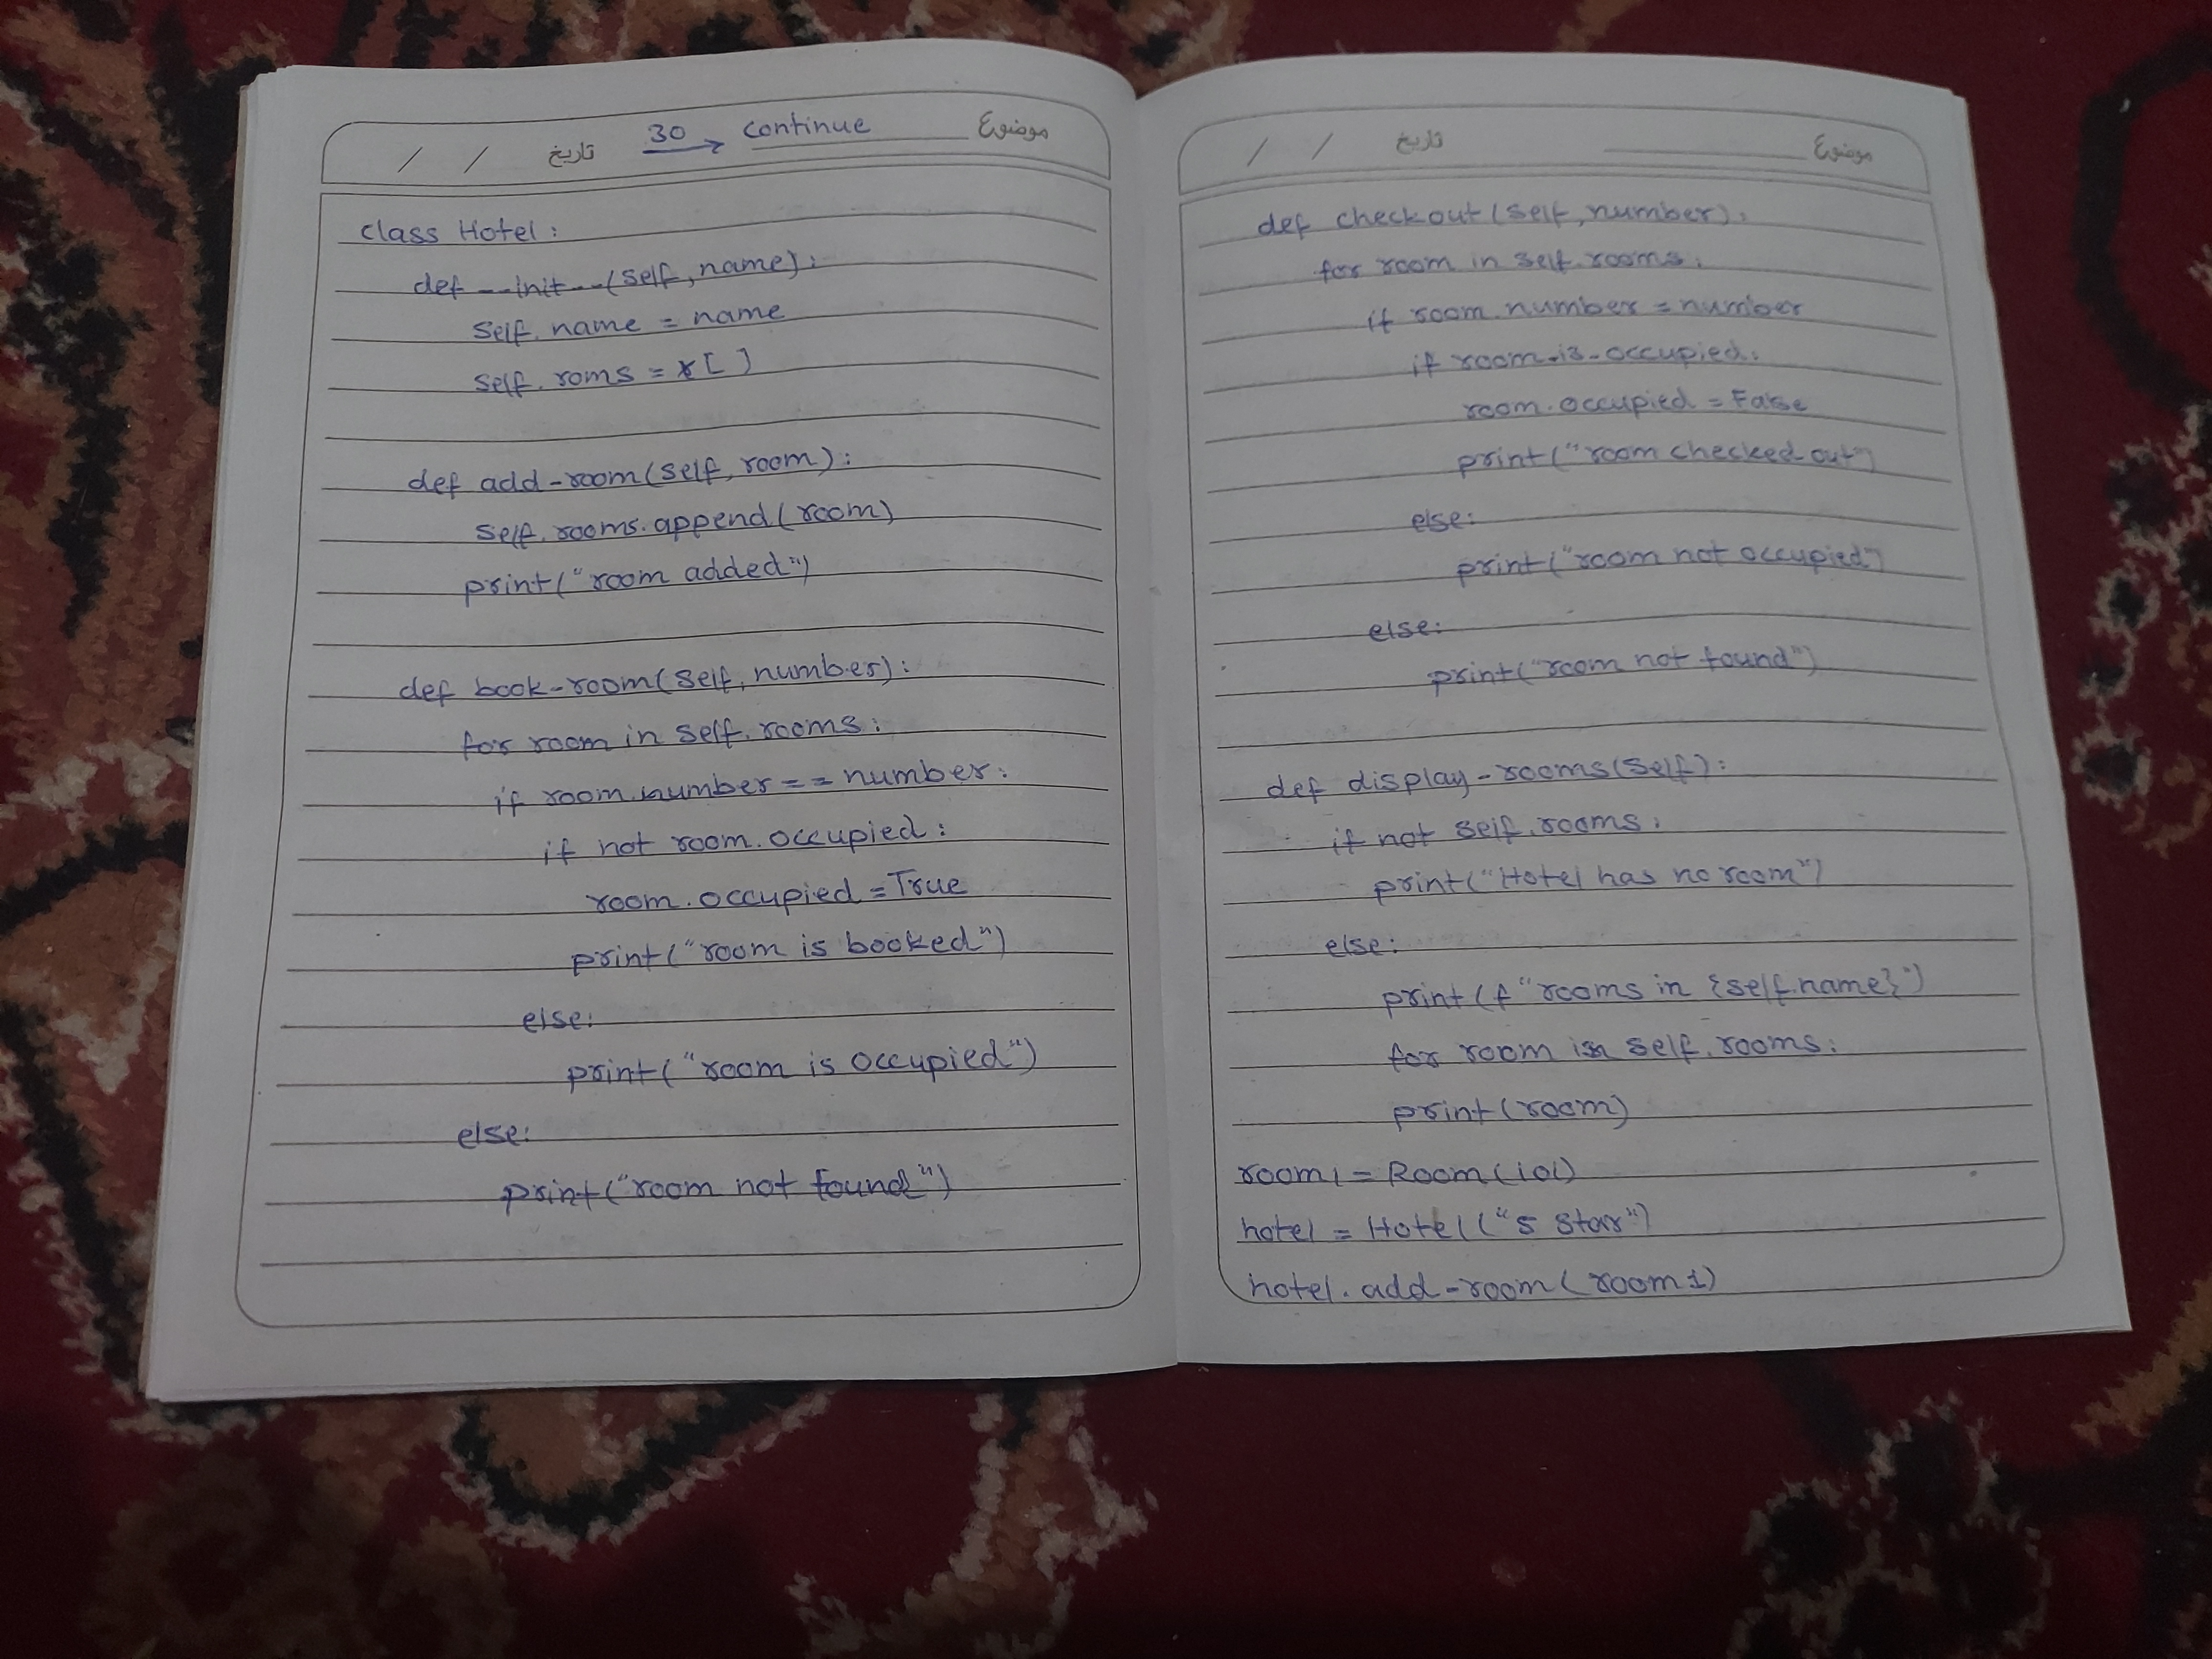 / / تاریخ 30 → continue موضوع
class Hotel:
def __init__(self, name):
self.name = name
self.roms = [ ]
def add-room(self, room):
self.rooms.append(room)
print("room added")
def book-room(self, number):
for room in self.rooms:
if room.number == number:
if not room.occupied:
room.occupied = True
print("room is booked")
else:
print("room is occupied")
else:
print("room not found")
/ / تاریخ موضوع
def checkout(self, number):
for room in self.rooms:
if room.number = number
if room.is-occupied:
room.occupied = False
print("room checked out")
else:
print("room not occupied")
else:
print("room not found")
def display-rooms(self):
if not self.rooms:
print("Hotel has no room")
else:
print(f"rooms in {self.name}")
for room in self.rooms:
print(room)
room1 = Room(101)
hotel = Hotel("5 star")
hotel.add-room(room1)